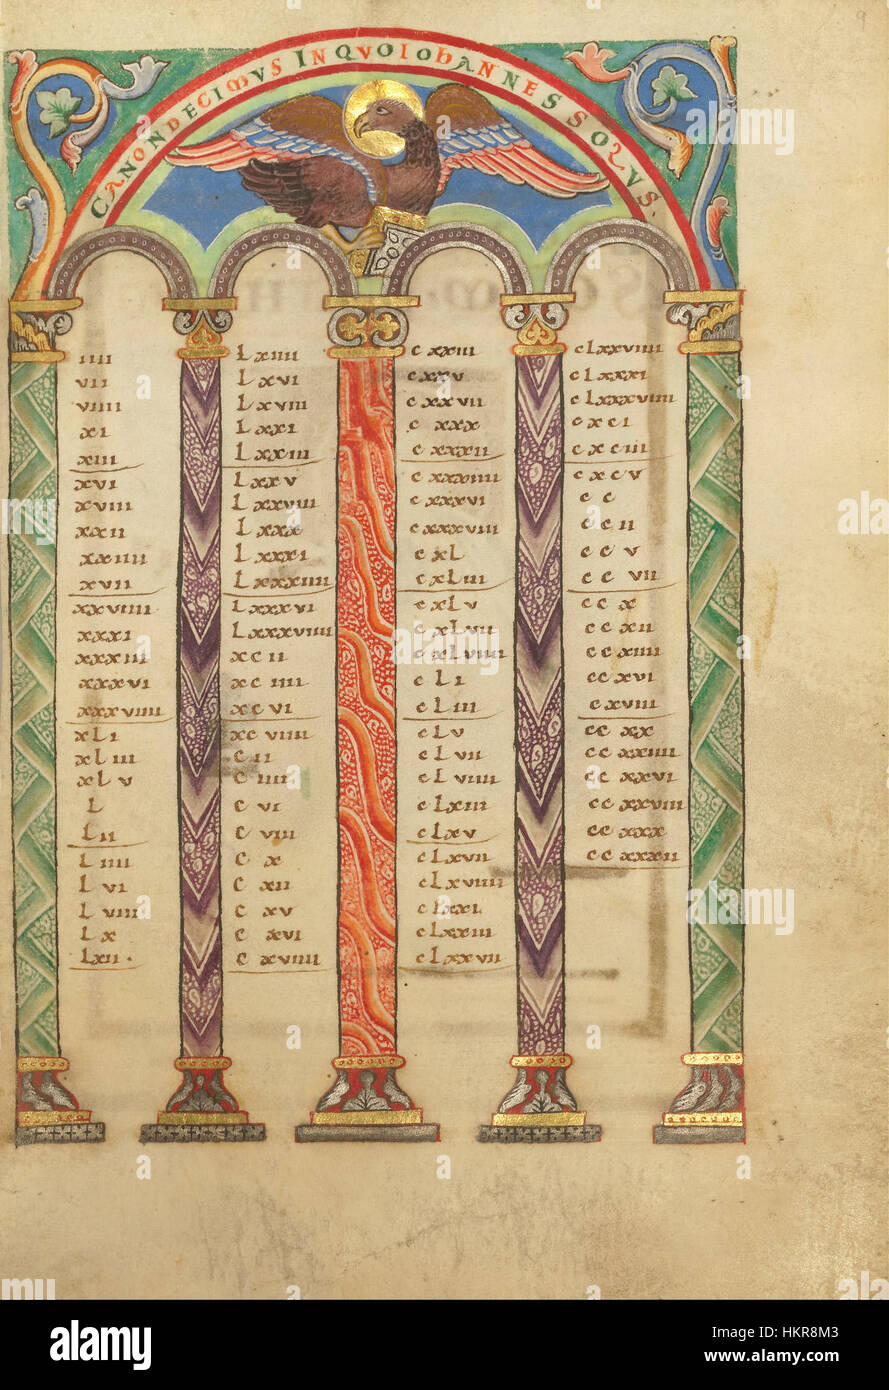 CANON DECIMVS IN QVO IOhANNES SOLVS.
IIII
VII
VIIII
XI
XIII
XVI
XVIII
XXII
XXIIII
XVII
XXVIIII
XXXI
XXXIII
XXXVI
XXXVIIII
XLI
XLIII
XLV
L
LII
LIIII
LVI
LVIII
LX
LXII.
LXIIII
LXVI
LXVIII
LXXI
LXXIII
LXXV
LXXVIII
LXXX
LXXXI
LXXXIIII
LXXXVI
LXXXVIIII
XCII
XCIIII
XCVI
XCVIIII
CII
CIIII
CVI
CVIII
CX
CXII
CXV
CXVI
CXVIIII
CXXIII
CXXV
CXXVII
CXXX
CXXXII
CXXXIIII
CXXXVI
CXXXVIII
CXL
CXLIII
CXLV
CXLVII
CXLVIIII
CLI
CLIII
CLV
CLVII
CLVIIII
CLXIII
CLXV
CLXVII
CLXVIIII
CLXXI
CLXXIII
CLXXVII
CLXXVIIII
CLXXXI
CLXXXVIIII
CXCI
CXCIII
CXCV
CC
CCII
CCV
CCVII
CCX
CCXII
CCXIIII
CCXVI
CXVIII
CCXX
CCXXIIII
CCXXVI
CCXXVIII
CCXXX
CCXXXII
9
alamy
Image ID: HKR8M3
www.alamy.com